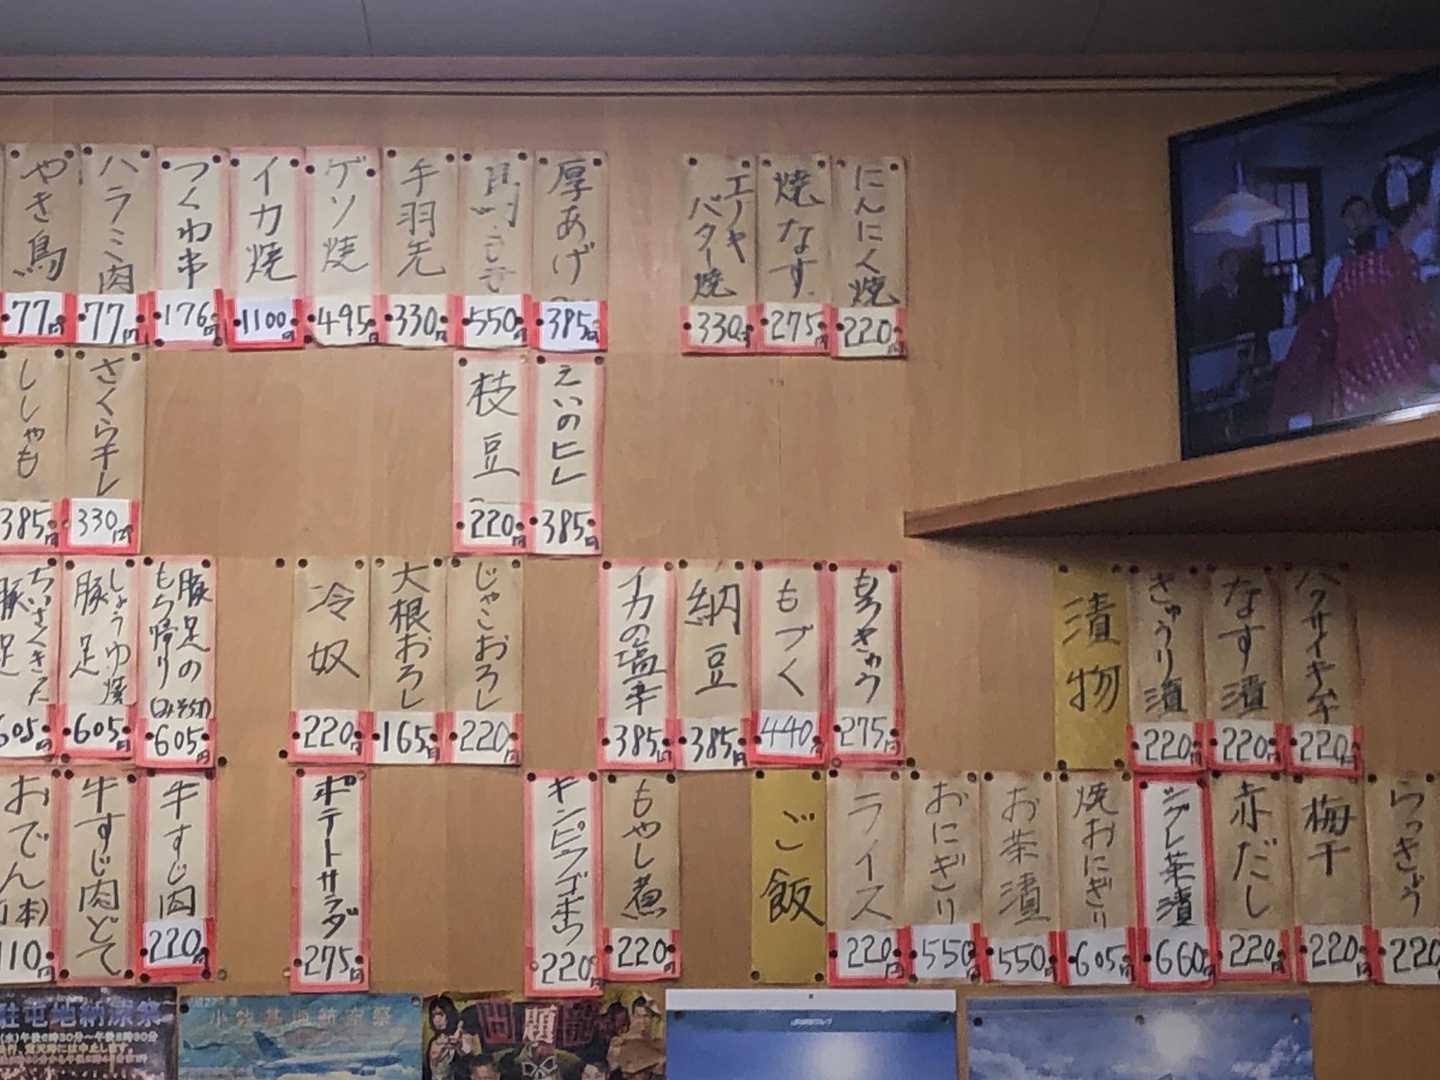 やき鳥
77円
ハラミ肉
77円
つくね串
176円
イカ焼
1100円
ゲソ焼
495円
手羽先
330円
550円
厚あげ
385円
エリンギ
バター焼
330円
焼なす
275円
にんにく焼
220円
ししゃも
385円
さくらチレ
330円
枝豆
220円
えいのヒレ
385円
豚足
605円
しょうゆ焼
豚足
605円
豚足の
もち帰り
(みそ付)
605円
冷奴
220円
大根おろし
165円
じゃこおろし
220円
イカの塩辛
385円
納豆
385円
もづく
440円
もろきゅう
275円
漬物
きゅうり漬
220円
なす漬
220円
ハクサイキムチ
220円
おでん
(1本)
110円
牛すじ肉どて
牛すじ肉
220円
ポテートサラダ
275円
キンピラゴボウ
220円
もやし煮
220円
ご飯
ライス
220円
おにぎり
550円
お茶漬
550円
焼おにぎり
605円
シグレ茶漬
660円
赤だし
220円
梅干
220円
らっきょう
220
駐屯地納涼祭
小牧基地航空祭
問題